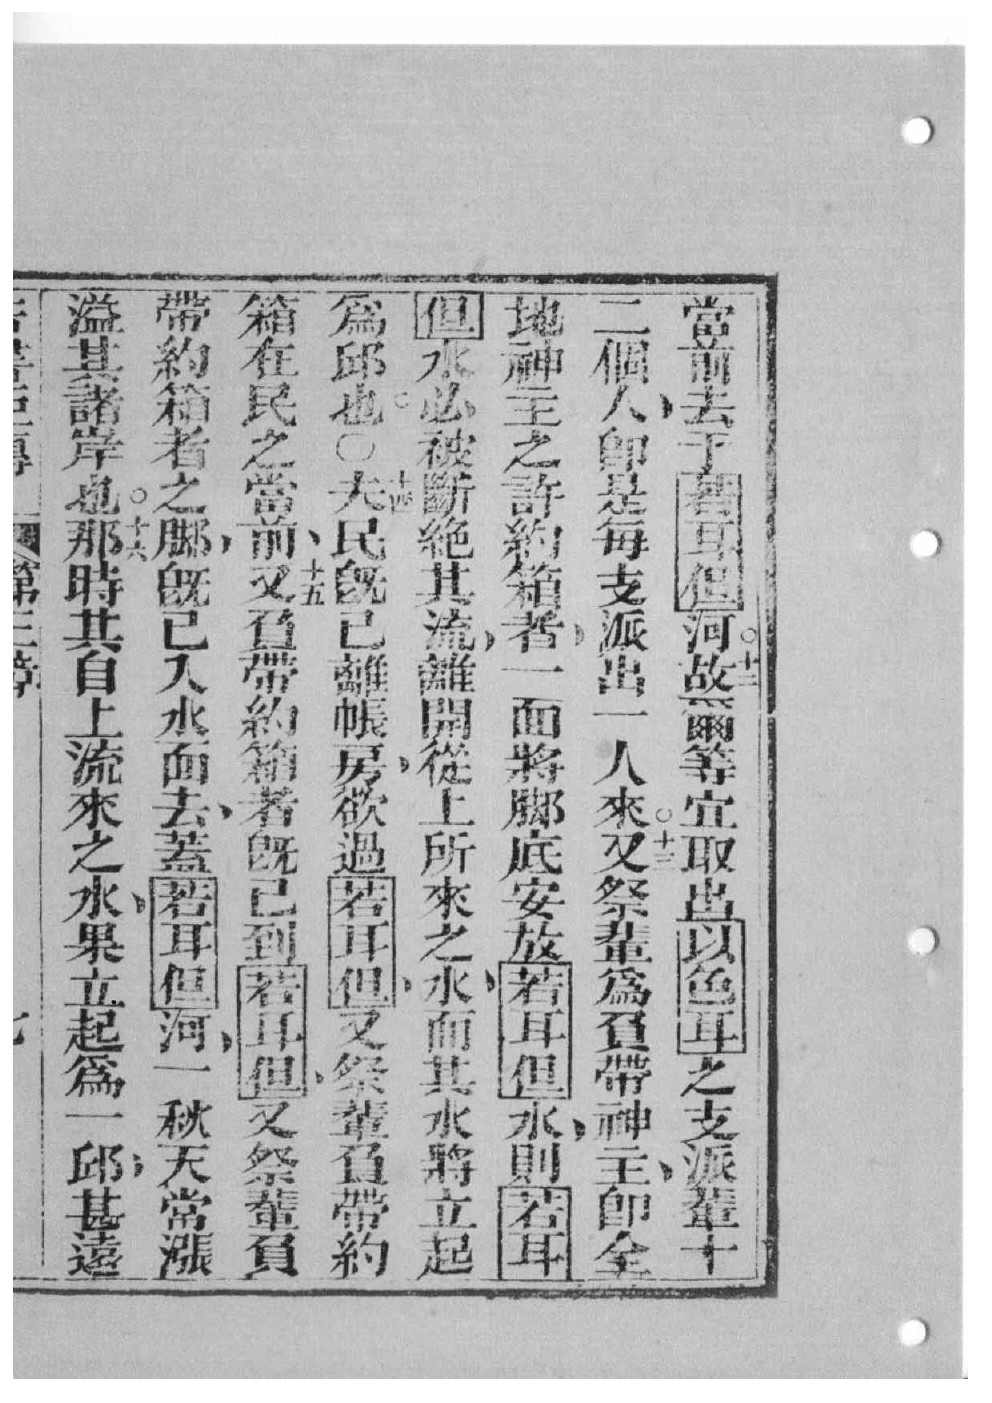 當前去于若耳但河○十二故爾等宜取出以色耳之支派輩十
二個人、即是每支派出一人來○十三又祭輩爲負帶神主、即全
地神主之許約箱者、一面將脚底安放若耳但水、則若耳
但水必被斷絕其流、離開從上所來之水、而其水將立起
爲邱也○○十四夫民既已離帳房、欲過若耳但、又祭輩負帶約
箱在民之當前、十五又負帶約箱者既已到若耳但、又祭輩負
帶約箱者之脚、既已入水面去、蓋若耳但河、一秋天常漲
溢其諸岸也○十六那時其自上流來之水、果立起爲一邱、甚遠